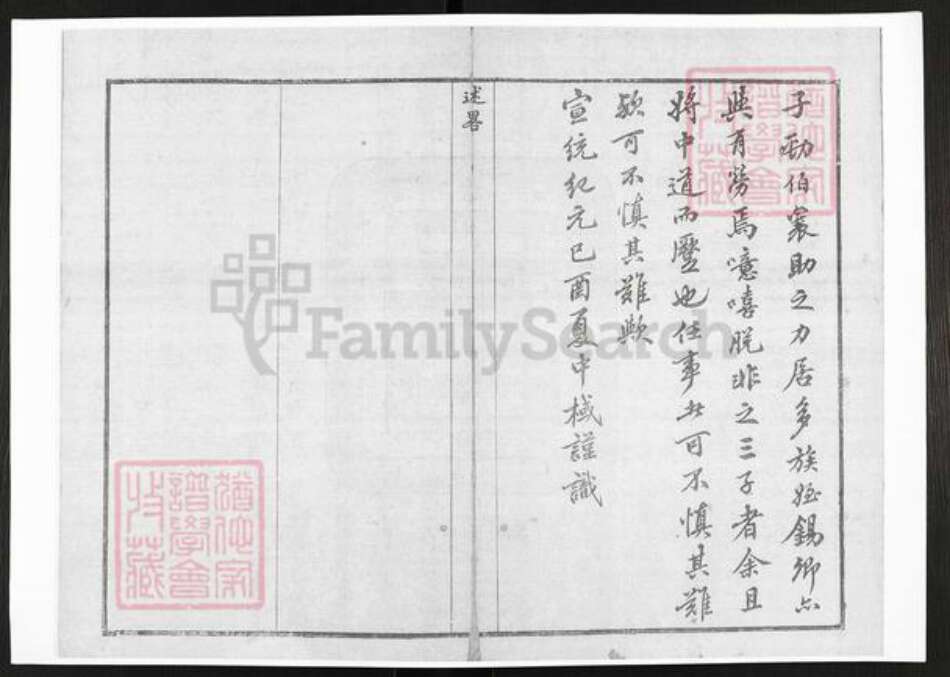 子勁伯襄助之力居多族姪錫卿亦
與有勞焉噫嘻脫非之三子者余且
將中道而蹙也任事此可不慎其難
歟可不慎其難歟
宣統紀元己酉夏中棫謹識
述畧
FamilySearch
猶他家
譜學會
收藏
猶他家
譜學會
收藏